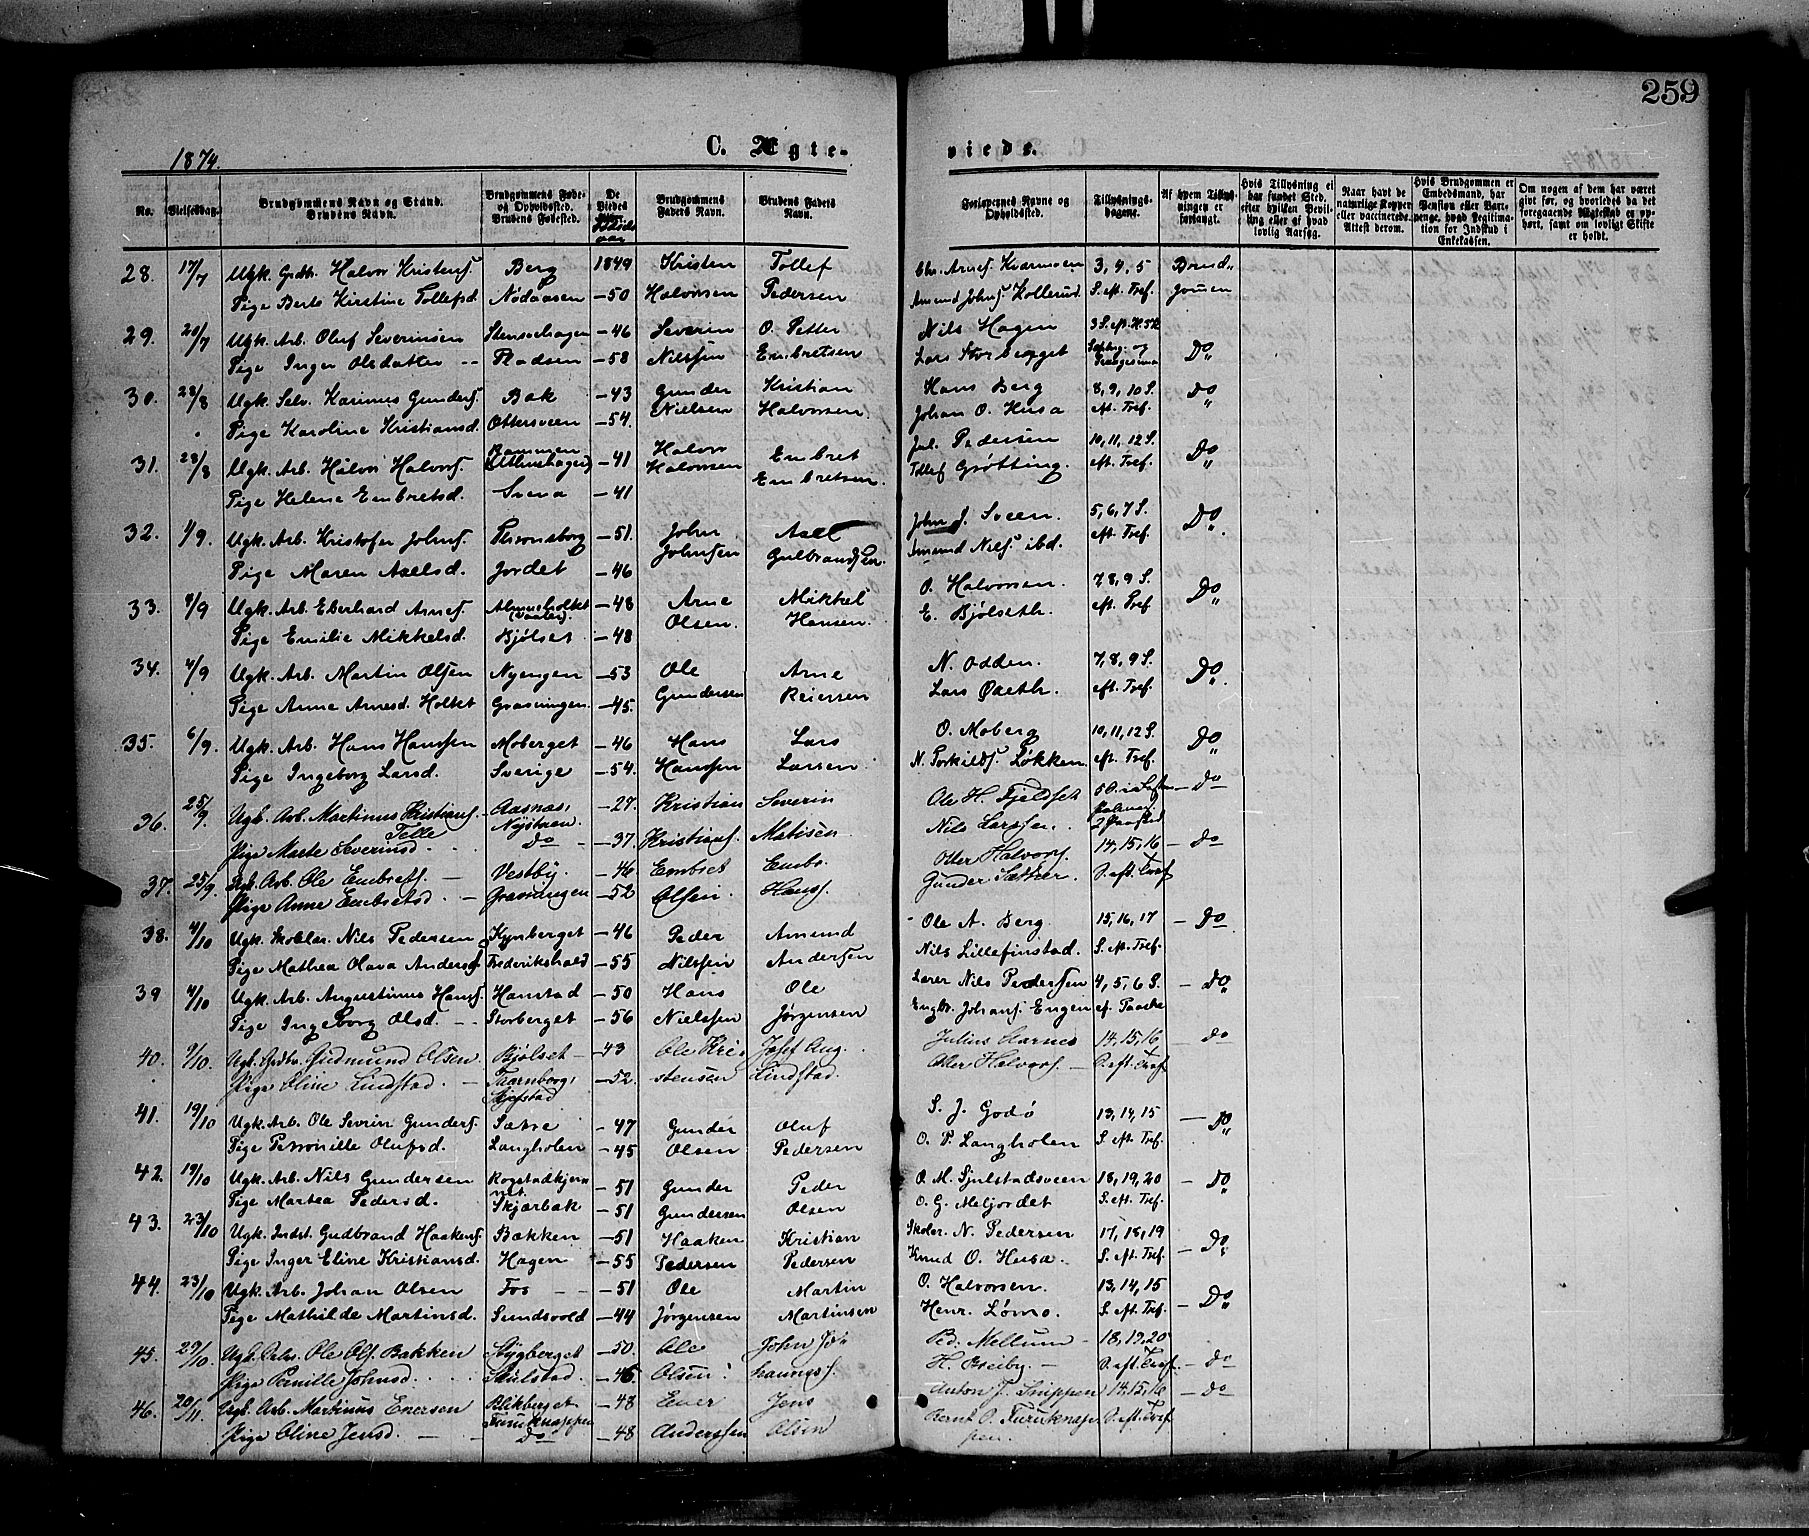 259
1874.
C. Ægte-
viede.
No.
Vielsesdag.
Brudgommens Navn og Stand.
Brudens Navn.
Brudgommens Føde- og Opholdssted.
Brudens Fødested.
De Viedes
Fødsels aar
Brudgommens Faders Navn.
Brudens Faders Navn.
Forlovernes Navne og Opholdssted.
Tillysnings-dagene.
Af hvem Tillysningen er forlangt.
Hvis Tillysning ei har fundet Sted, efter hvilken Bevilling eller af hvad lovlig Aarsag.
Naar havt de naturlige Kopper eller vaccinerede. Attest derom.
Hvis Brudgommen er Embedsmand, har Pension eller Vartpenge, hvad Legitimation for Indskud i Enkekassen.
Om nogen af dem har været gift før, og hvorledes da det foregaaende Ægteskab er ophørt, samt om lovligt Skifte er holdt.
28. 17/7 Ugk. Grdb. Halvor Kristens. Berg 1849 Kristen Tollef Chr. Arnes. Kvarnmoen 3, 4, 5 Brud-
Pige Berte Kirstine Tollefsd. Nodaasen -50 Halvorsen Pedersen Amund Johns. Kollerud S. eft. Tref. gommen
29. 20/7 Ugk. Arb. Oluf Severinsen Stensehagen -46 Severin O. Petter Nils Hagen
Pige Inger Olsdatter -- Fladsen -58 Nilssen Embretsen Lars Storberget Do
30. 28/8 Ugk. Selv. Karinus Gunders. Bak -43 Gunder Kristian Hans Berg 8, 9, 10 S. Do
Pige Karoline Kristiansd. Ottersveen -54. Nielsen Halvorsen Johan O. Husa eft. Tref.
31. 28/8 Ugk. Arb. Halvor Halvors. -41 Halvor Embret Jul. Pedersen 10, 11, 12 S. Do
Pige Helene Embretsd. Svena -41 Halvorsen Embretsen. Tollef Grøtting. eft. Tref.
32. 1/9. Ugk. Arb. Kristofer Johns. Thronsborg -51. John Axel John J. Sveen. 5, 6, 7 S. Do
Pige Maren Axelsd. Jordet -46 Johnsen Gulbrands. Amund Nils. ibd. eft. Tref.
33. 4/9 Ugk. Arb. Eberhard Arnes. Almesholtet (Vaaler) -48 Arne Mikkel O. Halvorsen. 7, 8, 9 S. Do
Pige Emilie Mikkelsd. Bjølset -48 Olsen. Hansen. E. Bjølseth. eft. Tref
34. 4/9 Ugk. Arb. Martin Olsen Nyengen -53 Ole Arne N. Odden. 7, 8, 9 S. Do
Pige Anne Arnesd. Holtet Grasningen. -45. Gundersen Reiersen Lars Øaeth. eft. Tref.
35. 6/9. Ugk. Arb. Hans Hanssen Moberget -46 Hans Lars O. Moberg 10, 11, 12 S. Do
Pige Ingeborg Larsd. Sverige -54. Hanssen Larsen N. Torkilds. Løkken. eft. Tref.
36. 25/9. Ugk. Arb. Martinus Kristians. Aasnas, -27. Kristian Severin Ole H. Fjeldset - Do -
Telle Nystuen
Pige Marte Severinsd. Do -37. Kristians. Matisen Nils Larssen.
37. 25/9 Ugk. Arb. Ole Embrets. Vestby, -46 Embret Embr. Otter Halvors. 14, 15, 16 - Do
Pige Anne Embretsd. Graveningen -52 Olsen. Hans. Gunder Sæther. S. eft. Tref
38. 4/10 Ugk. Skolelær. Nils Pedersen Kynberget -46 Peder Amund Ole A. Berg. 15, 16, 17 - Do
Pige Mathea Olava Anders. Frederikshald -55 Nilssen Andersen Nils Lillefinstad. S. eft. Tref.
39 4/10 Ugk. Arb. Augustinus Hans. Hanstad -50 Hans Ole Lærer Nils Pedersen 4, 5, 6 S. - Do
Pige Ingeborg Olsd. -- Storberget -56 Nielssen Jørgensen Engbr. Johans. Engen ef. Paaske
40. 9/10 Ugk. Grdbr. Gudmund Olsen Bjølset -43 Ole Kris Josef Aug. Julius Harnes 14, 15, 16 - Do
Pige Oline Lindstad. Taarnborg, Skjefstad -52. stensen Lindstad. Otter Halvors. S. eft. Tref
41. 19/10 Ugk. Arb. Ole Severin Gunders. Sætre -47 Gunder Oluf S. J. Godø 13, 14, 15 - Do
Pige Pernille Olufsd. Langholen -45 Olsen Pedersen O. P. Langholen S. eft. Tref.
42. 19/10 Ugk. Arb. Nils Gundersen Rogstadkjernnet -51 Gunder Peder O. M. Sjulstadsveen 18, 19, 20 - Do
Pige Martea Pedersd. Skjærbak -51 Gundersen Olsen O. G. Meljordet S. eft. Tref.
43. 23/10 Ugk. Indst. Gudbrand Haakens. Bakken -51 Haaken Kristian Skoler. N. Pedersen 17, 18, 19
Pige Inger Eline Kristiansd. Hagen -55 Pedersen Pedersen Knud O. Husa. S. eft. Tref. - Do
44. 23/10 Ugk. Arb. Johan Olsen Fos -- -51 Ole Martin O. Halvorsen. 13, 14, 15
Pige Mathilde Martinsd. Sundsvold -44 Jørgensen Martinsen Henr. Lømo. S. eft. Tref - Do
45. 29/10 Ugk. Selv. Ole Ols. Bakken Stygberget -50. Ole John Jo- Ped. Mellum 18, 19, 20
Pige Pernille Johnsd. Skulstad. -46. Olsen. hannes. H. Breiby. S. eft. Tref. - Do
46. 20/11. Ugk. Arb. Martinus Enersen Blikberget -48 Ener Jens Anton J. Snippen 14, 15, 16 - Do
Furuknappen
Pige Oline Jensd. Do -48 Anderssen Olsen Bernt O. Furuknap- S. eft. Tref
pen.